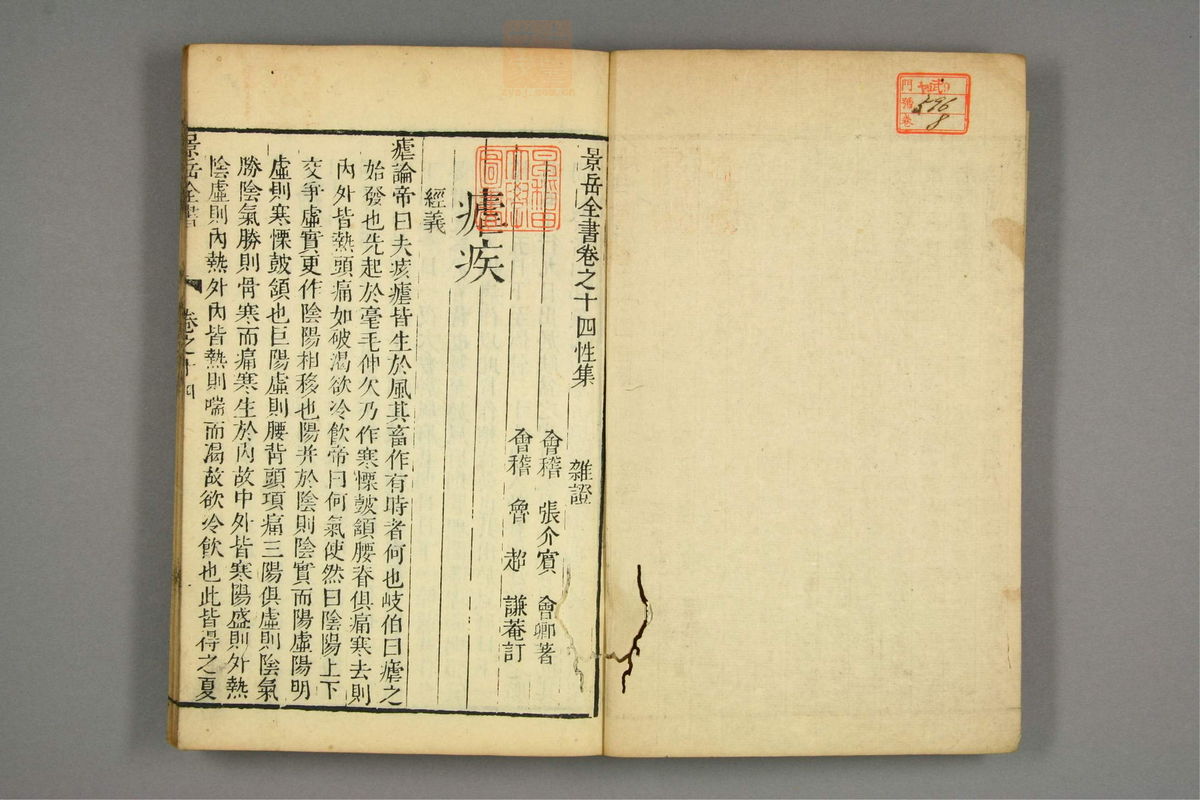 景岳全書卷之十四性集
雜證
會稽 張介賓 會卿著
會稽 魯超 謙菴訂
瘧疾
經義
瘧論帝曰夫痎瘧皆生於風其畜作有時者何也岐伯曰瘧之
始發也先起於毫毛伸欠乃作寒慄鼓頷腰脊俱痛寒去則
內外皆熱頭痛如破渴欲冷飲帝曰何氣使然曰陰陽上下
交爭虛實更作陰陽相移也陽并於陰則陰實而陽虛陽明
虛則寒慄鼓頷也巨陽虛則腰背頭項痛三陽俱虛則陰氣
勝陰氣勝則骨寒而痛寒生於內故中外皆寒陽盛則外熱
陰虛則內熱外內皆熱則喘而渴故欲冷飲也此皆得之夏
景岳全書 卷之十四
早稻田大學圖書
門
號 596
卷 8